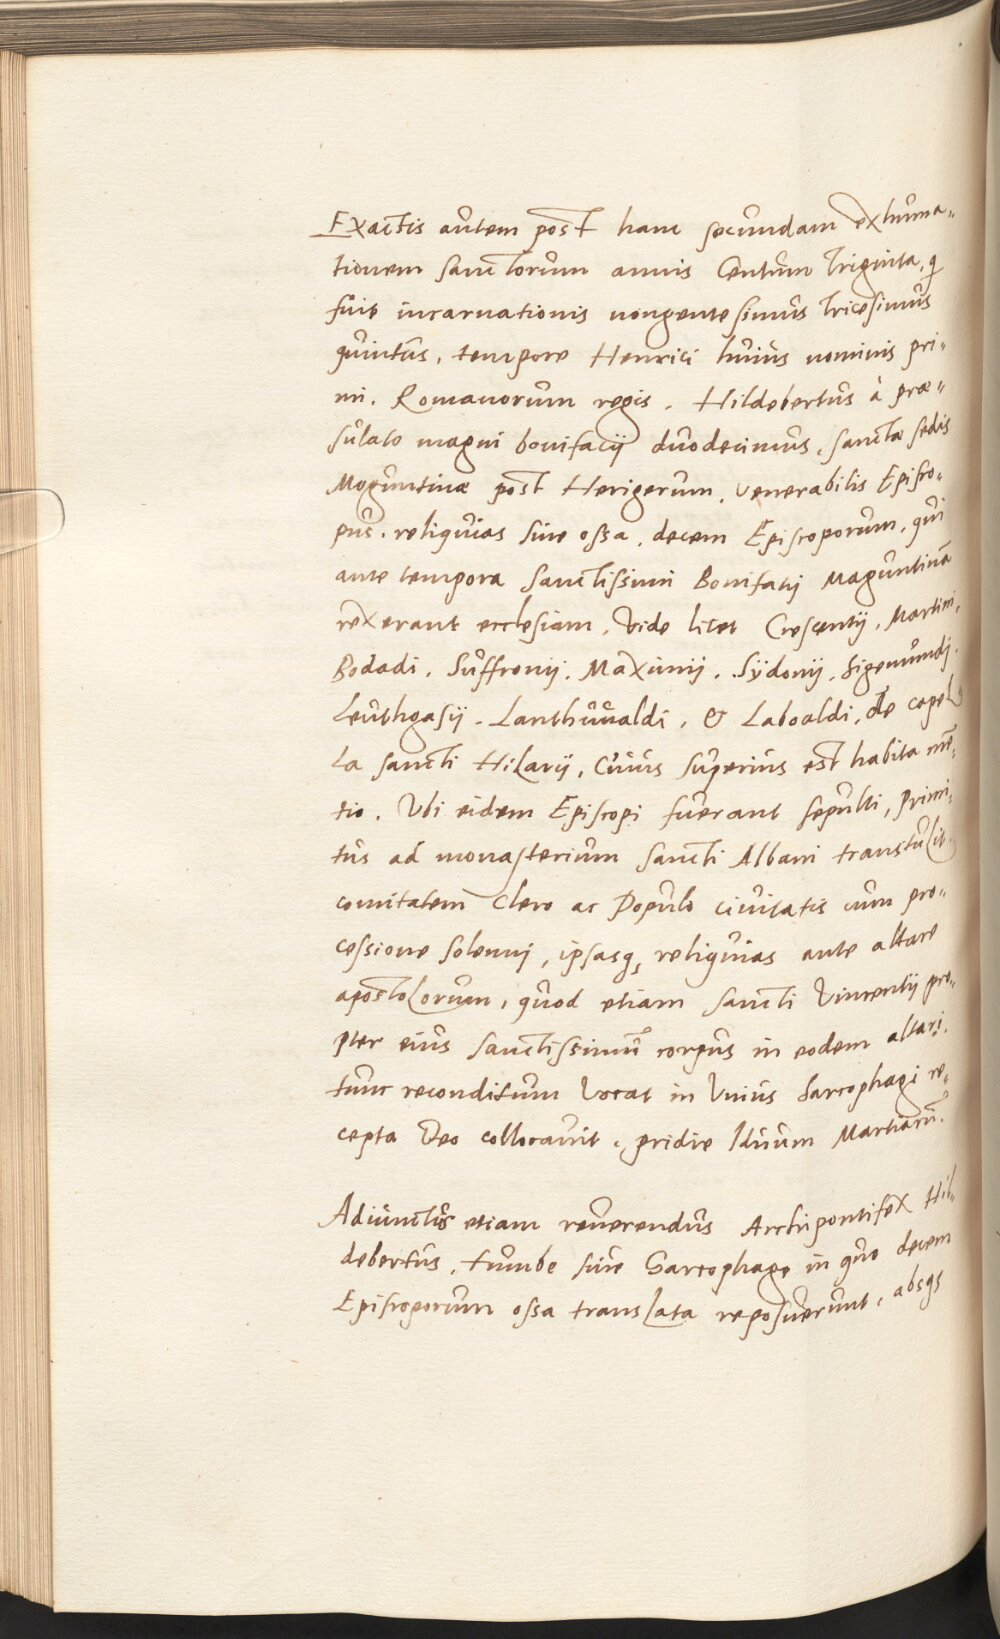 Exactis autem post hanc secundam exhuma-
tionem sanctorum annis Centum Triginta, q
fuit incarnationis nongentesimus Tricesimus
quintus, tempore Henrici huius nominis pri-
mi. Romanorum regis. Hildebertus à præ-
sulato magni bonifacij duodecimus, sanctæ sedis
Moguntinæ post Herigerum, venerabilis Episco-
pus. reliquias sive ossa, decem Episcoporum, qui
ante tempora sanctissimi Bonifatij Maguntinã
rexerant ecclesiam, vide licet Crescentij, Martini,
Bodadi, Suffronij, Maximij, Sÿdonij, Sigemundj,
Leuthgasij. Lanthuualdi, & Laboaldi, de capel
la sancti Hilarij, Cuius superius est habita mẽ-
tio. Vbi eidem Episcopi fuerant sepulti, primi-
tus ad monasterium sancti Albani transtulit
comitatem Clero ac Populo ciuitatis cum pro-
cessione solennj, ipsasq, reliquias ante altare
apostolorum, quod etiam sancti Vincentij pro-
pter eius sanctissimũ corpus in eodem altari,
tunc reconditum vocat in Vnius Sarcophagi re-
cepta Deo collocauit, pridie Iduum Martiarũ.
Adiunctus etiam reuerendus Archipontifex Hil-
debertus, tumbe siue Sarcophago in quo decem
Episcoporum ossa translata reposuerunt, absq;